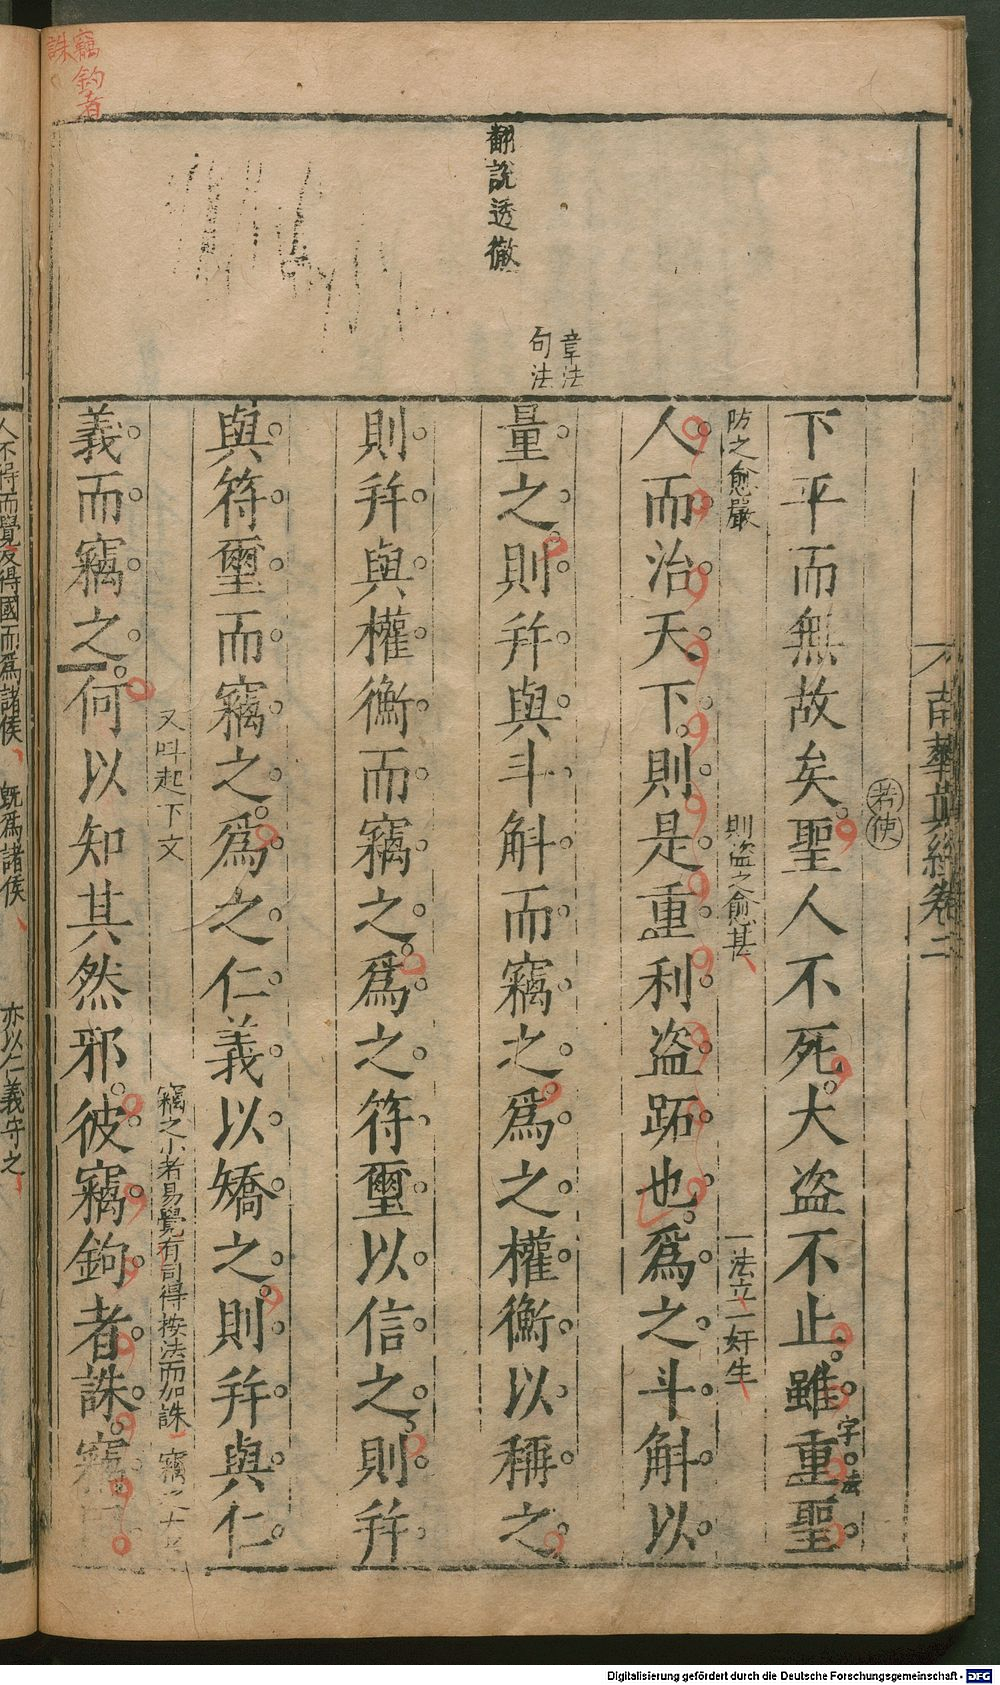 南華真經卷二
若使
下平而無故矣聖人不死大盜不止雖重聖
字法
防之愈嚴
則盜之愈甚
一法立一奸生
人而治天下則是重利盜跖也爲之斗斛以
章法
句法
翻說透徹
量之則并與斗斛而竊之爲之權衡以稱之
則并與權衡而竊之爲之符璽以信之則并
與符璽而竊之爲之仁義以矯之則并與仁
又呌起下文
竊之小者易覺有司得按法而加誅
竊之大
義而竊之何以知其然邪彼竊鉤者誅竊
竊鈎者
誅
人不得而覺反得國而爲諸侯
既爲諸侯
亦以仁義守之
Digitalisierung gefördert durch die Deutsche Forschungsgemeinschaft - DFG